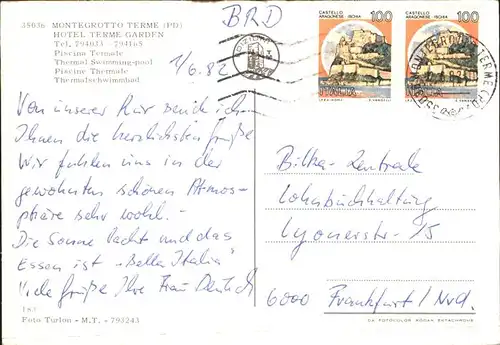 35036 MONTEGROTTO TERME (PD)
HOTEL TERME GARDEN
Tel. 794033 - 794165
Piscine Termale
Thermal Swimming-pool
Piscine Thermale
Thermalschwimmbad
BRD
1/6.82
Von unserer Kur sende ich
Ihnen die herzlichsten Grüße
Wir fühlen uns in der
gewohnten schönen Atmos-
phäre sehr wohl. -
Die Sonne lacht und das
Essen ist „Bella Italia"
Viele Grüße Ihre Frau
183
Foto Turlon - M.T. - 793243
CASTELLO
ARAGONESE - ISCHIA
100
ITALIA
CASTELLO
ARAGONESE - ISCHIA
100
ITALIA
MONTEGROTTO TERME (PD)
Bilka-Zentrale
Lohnbuchhaltung
Lyonerstr. 15
6000 Frankfurt / Nrd.
DA FOTOCOLOR KODAK EKTACHROME